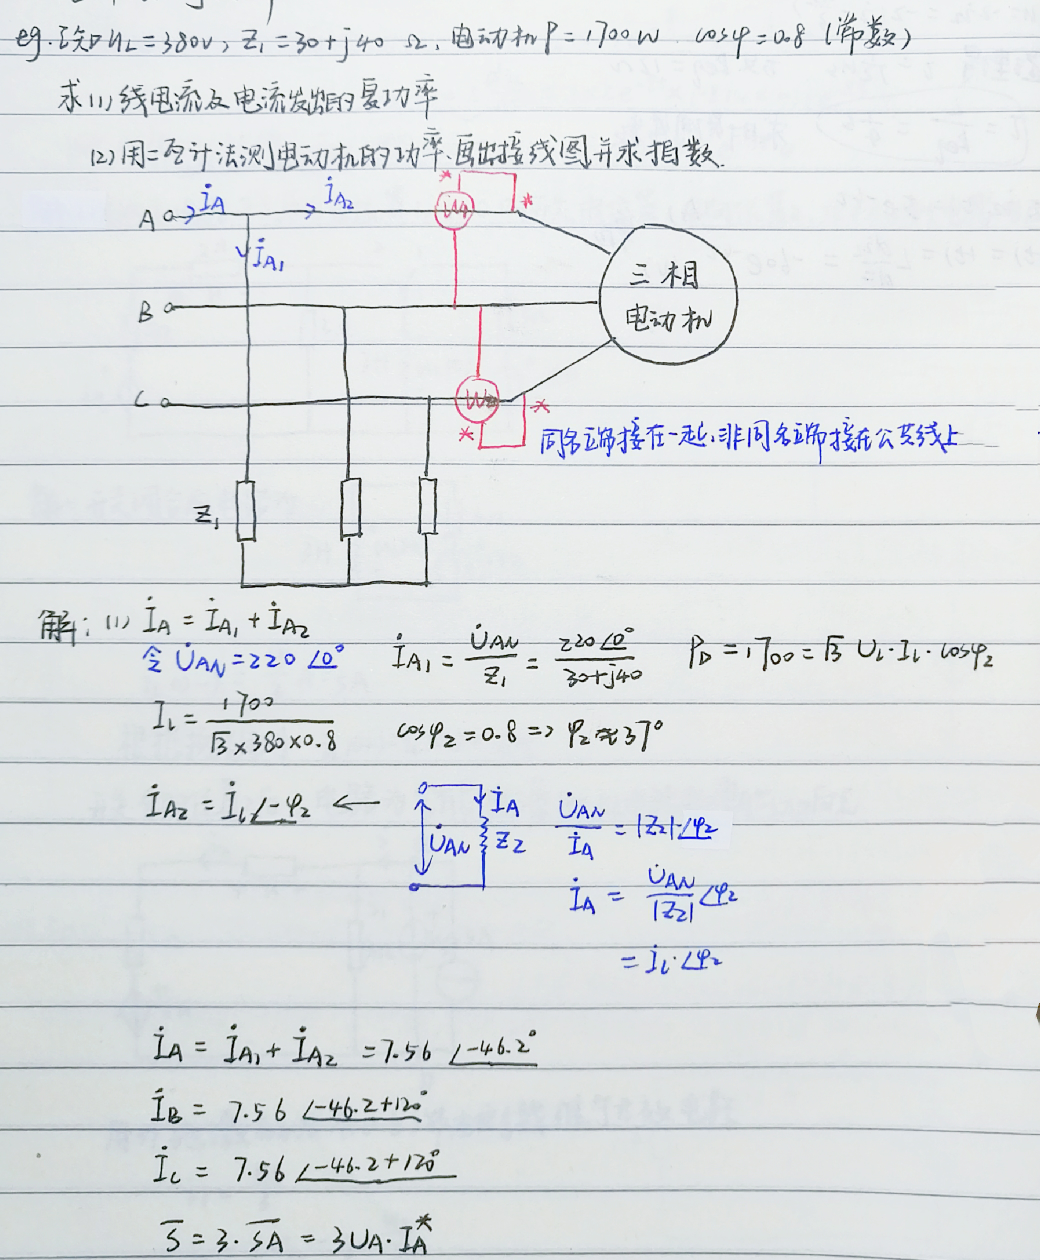 eg. 已知 U_L=380V, Z₁=30+j40 Ω, 电动机 P=1700W cosφ=0.8 (常数)
求(1)线电流及电流发出的复功率
(2)用二表计法测电动机的功率、画出接线图并求指数.
A İ_A İ_A2 * W₁ *
İ_A1
B
三相
电动机
C W₂ *
*
同名端接在一起,非同名端接在公共线上
Z₁
解: (1) İ_A = İ_A1 + İ_A2
令 U̇_AN = 220∠0° İ_A1 = U̇_AN/Z₁ = 220∠0°/(30+j40) P_D = 1700 = √3 U_L·I_L·cosφ₂
I_L = 1700/(√3×380×0.8) cosφ₂=0.8 => φ₂≈37°
İ_A2 = İ_L∠-φ₂ ←
İ_A
U̇_AN Z₂
U̇_AN/İ_A = |Z₂|·∠φ₂
İ_A = U̇_AN/|Z₂| ∠φ₂
= İ_L·∠φ₂
İ_A = İ_A1 + İ_A2 = 7.56 ∠-46.2°
İ_B = 7.56 ∠-46.2+120°
İ_C = 7.56 ∠-46.2+120°
S̄ = 3·S̄_A = 3U_A·I_A*